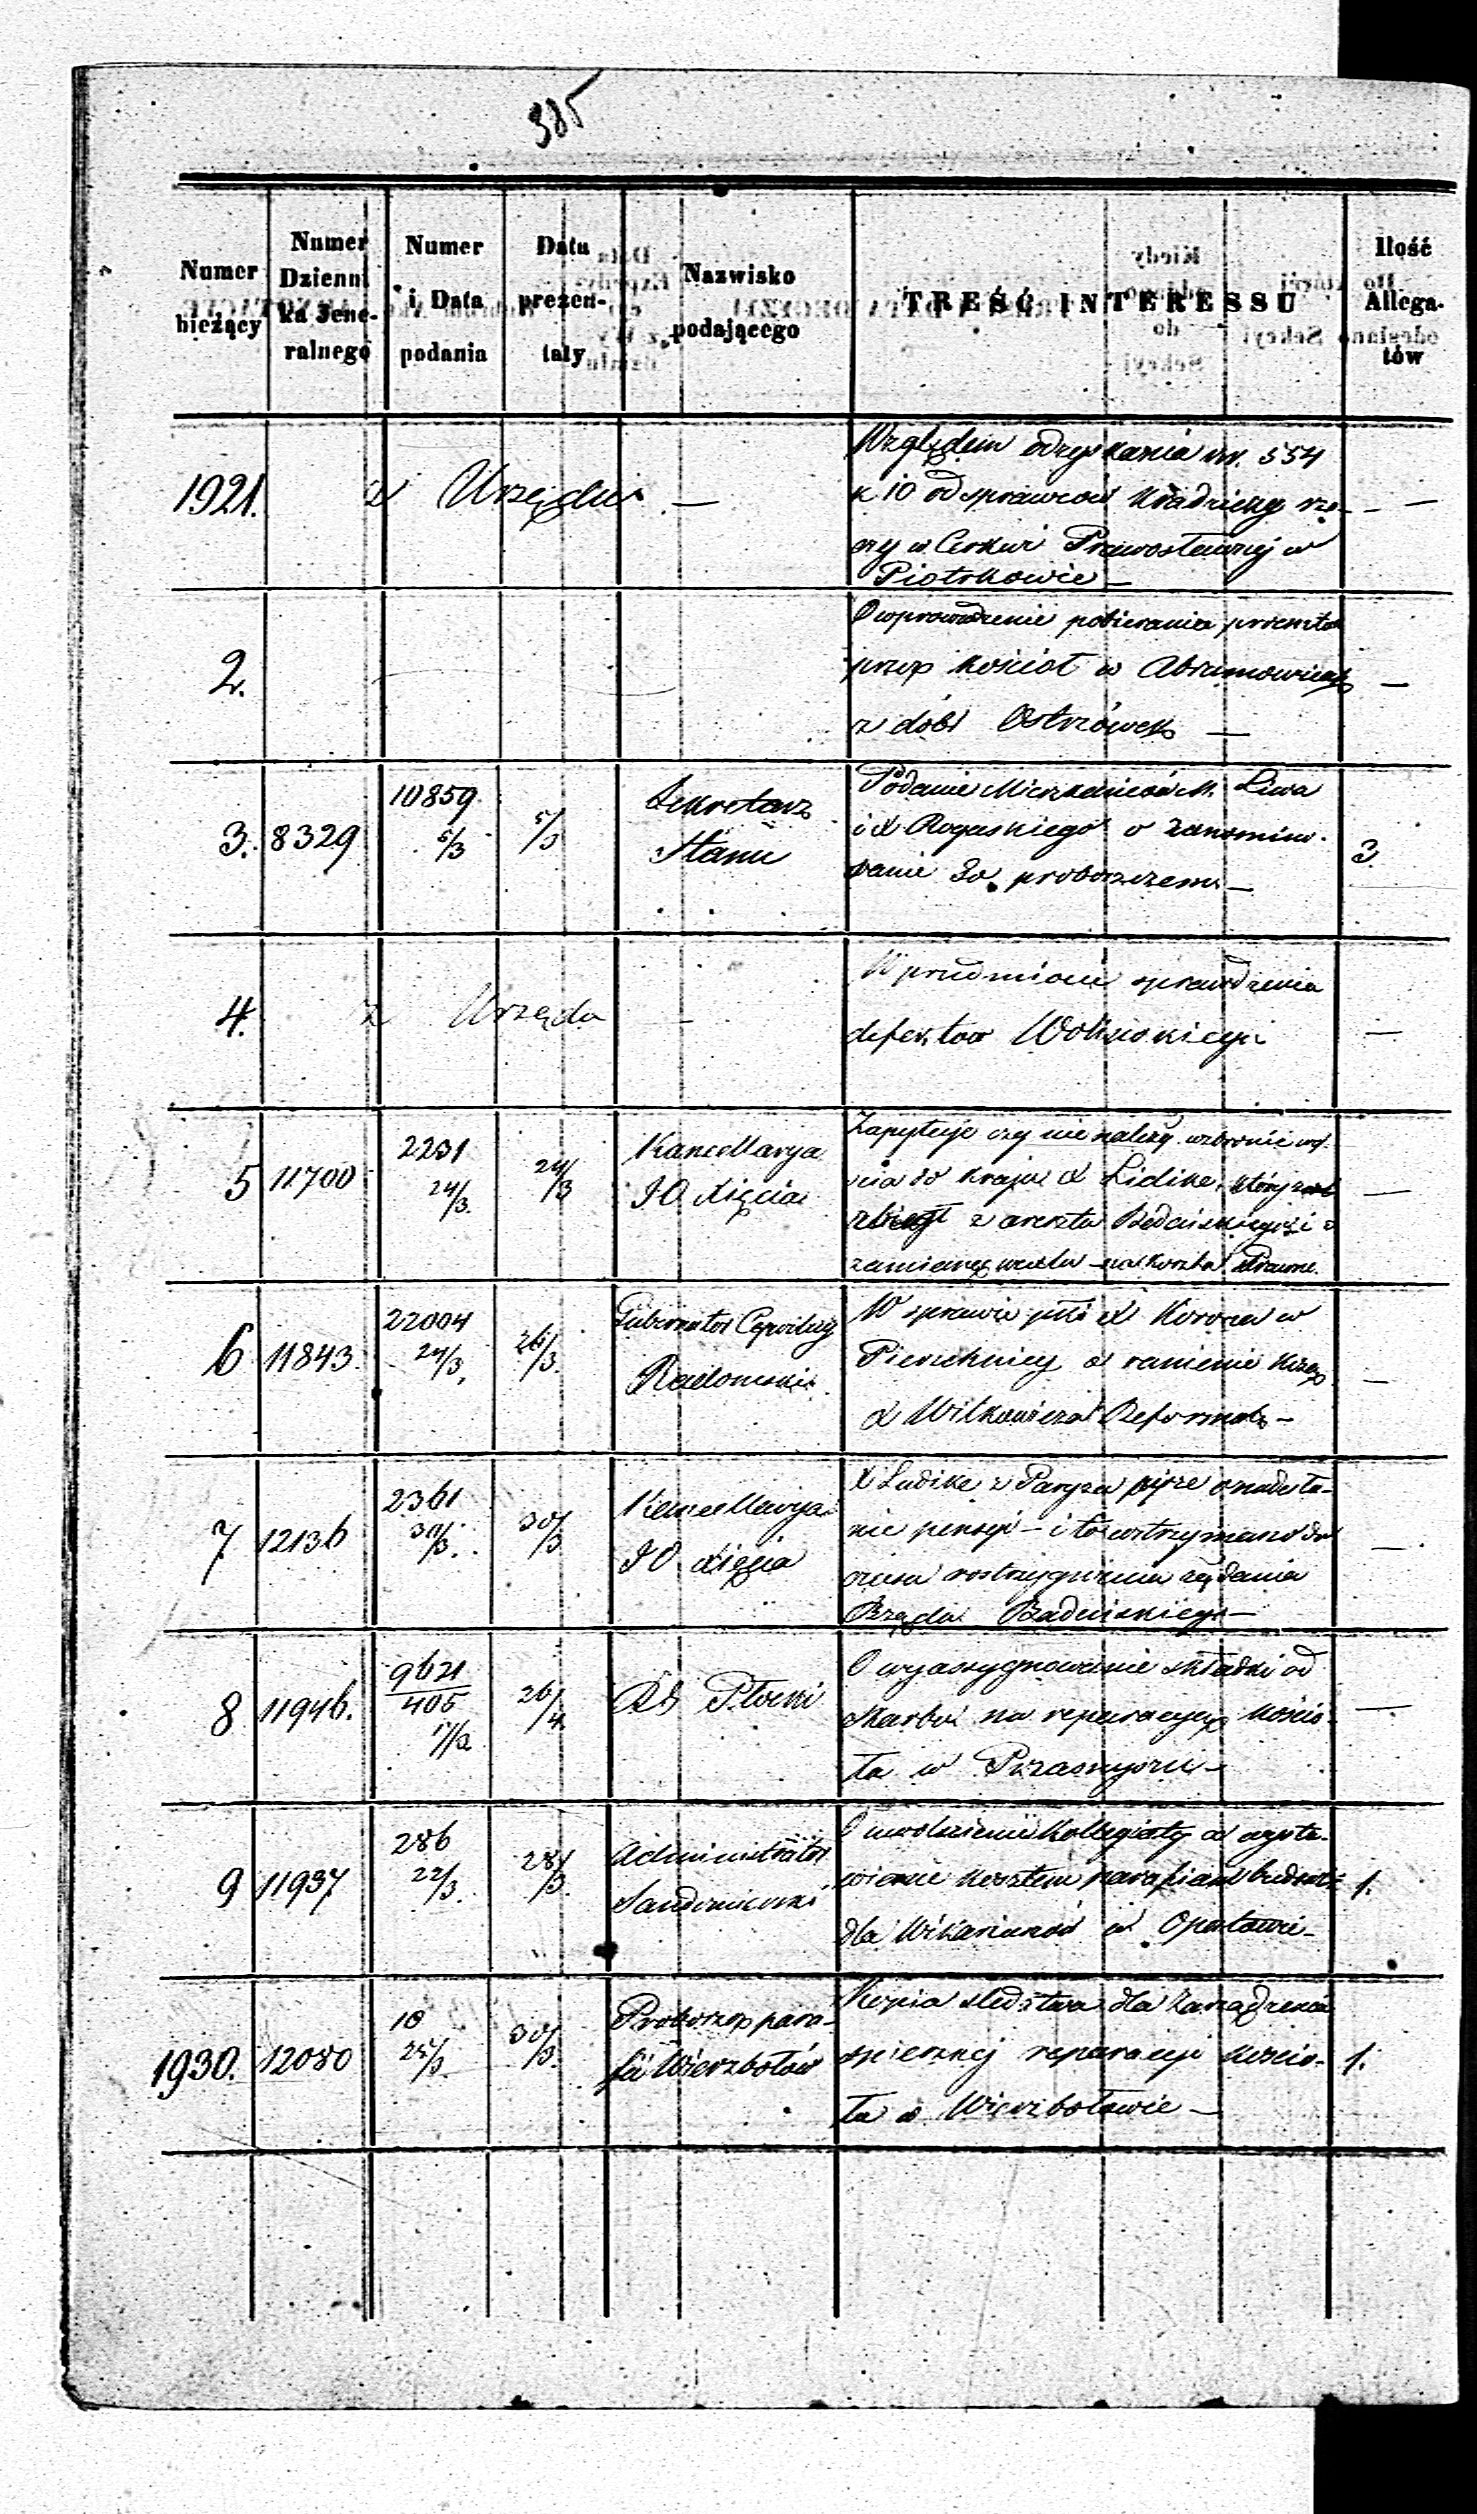 385
Numer bieżący
Numer Dziennika Jeneralnego
Numer i Data podania
Data prezentaty
Nazwisko podającego
TREŚĆ INTERESSU
Ilość Allegatów
1921. z Urzędu —
Względem odzyskania rsr. 554
k 10 od sprawców kradzieży rze-
czy w Cerkwi Prawosławnej w
Piotrkowie —
—
2.
O wprowadzenie pobierania
przez kościoł w Abramowicach
z dóbr Ostrówek —
—
3. 8329
10859
5/3
5/3
Sekretarz
Stanu
Podanie Mieszkańców M. Liwa
i X Rogaskiego o zanomino-
wanie go proboszczem —
3
4. z Urzędu —
W przedmiocie sprawdzenia
defektów
—
5 11700
2231
24/3
24/3
Kancellarya
JO Xięcia
Zapytuje czy nie należy wzbronić
do kraju X Lidike, który
zbiegł z aresztu
na koszta
—
6 11843
22004
24/3
26/3
Gubernator Cywilny
Radomski
W sprawie X Korona w
o ranienie
X Witkowicza Reformata —
—
7 12136
2361
30/3
30/3
Kancellarya
JO Xięcia
X Ludike z Paryża pisze o nadesła-
nie pensyi — i to wstrzymano do
czasu rostrzygnienia żądania
Rządu Badeńskiego —
—
8 11946.
9621
405
17/2
26/4
RG Płocki
O wyassygnowanie składki od
Skarbu na reparacyę kościo-
ła w Przasnyszu —
—
9 11937
286
22/3
28/3
Administrator
Sandomierski
O uwolnienie Kollegiaty od wysta-
wienia kosztem parafian budowli
dla Wikariuszów w Opatowie —
1.
1930. 12080
10
25/3
30/3
Proboszcz para-
fii Wierzbołów
Kopia śledztwa dla zarządzenia
śpiesznej reparacyi kościo-
ła w Wierzbołowie —
1.